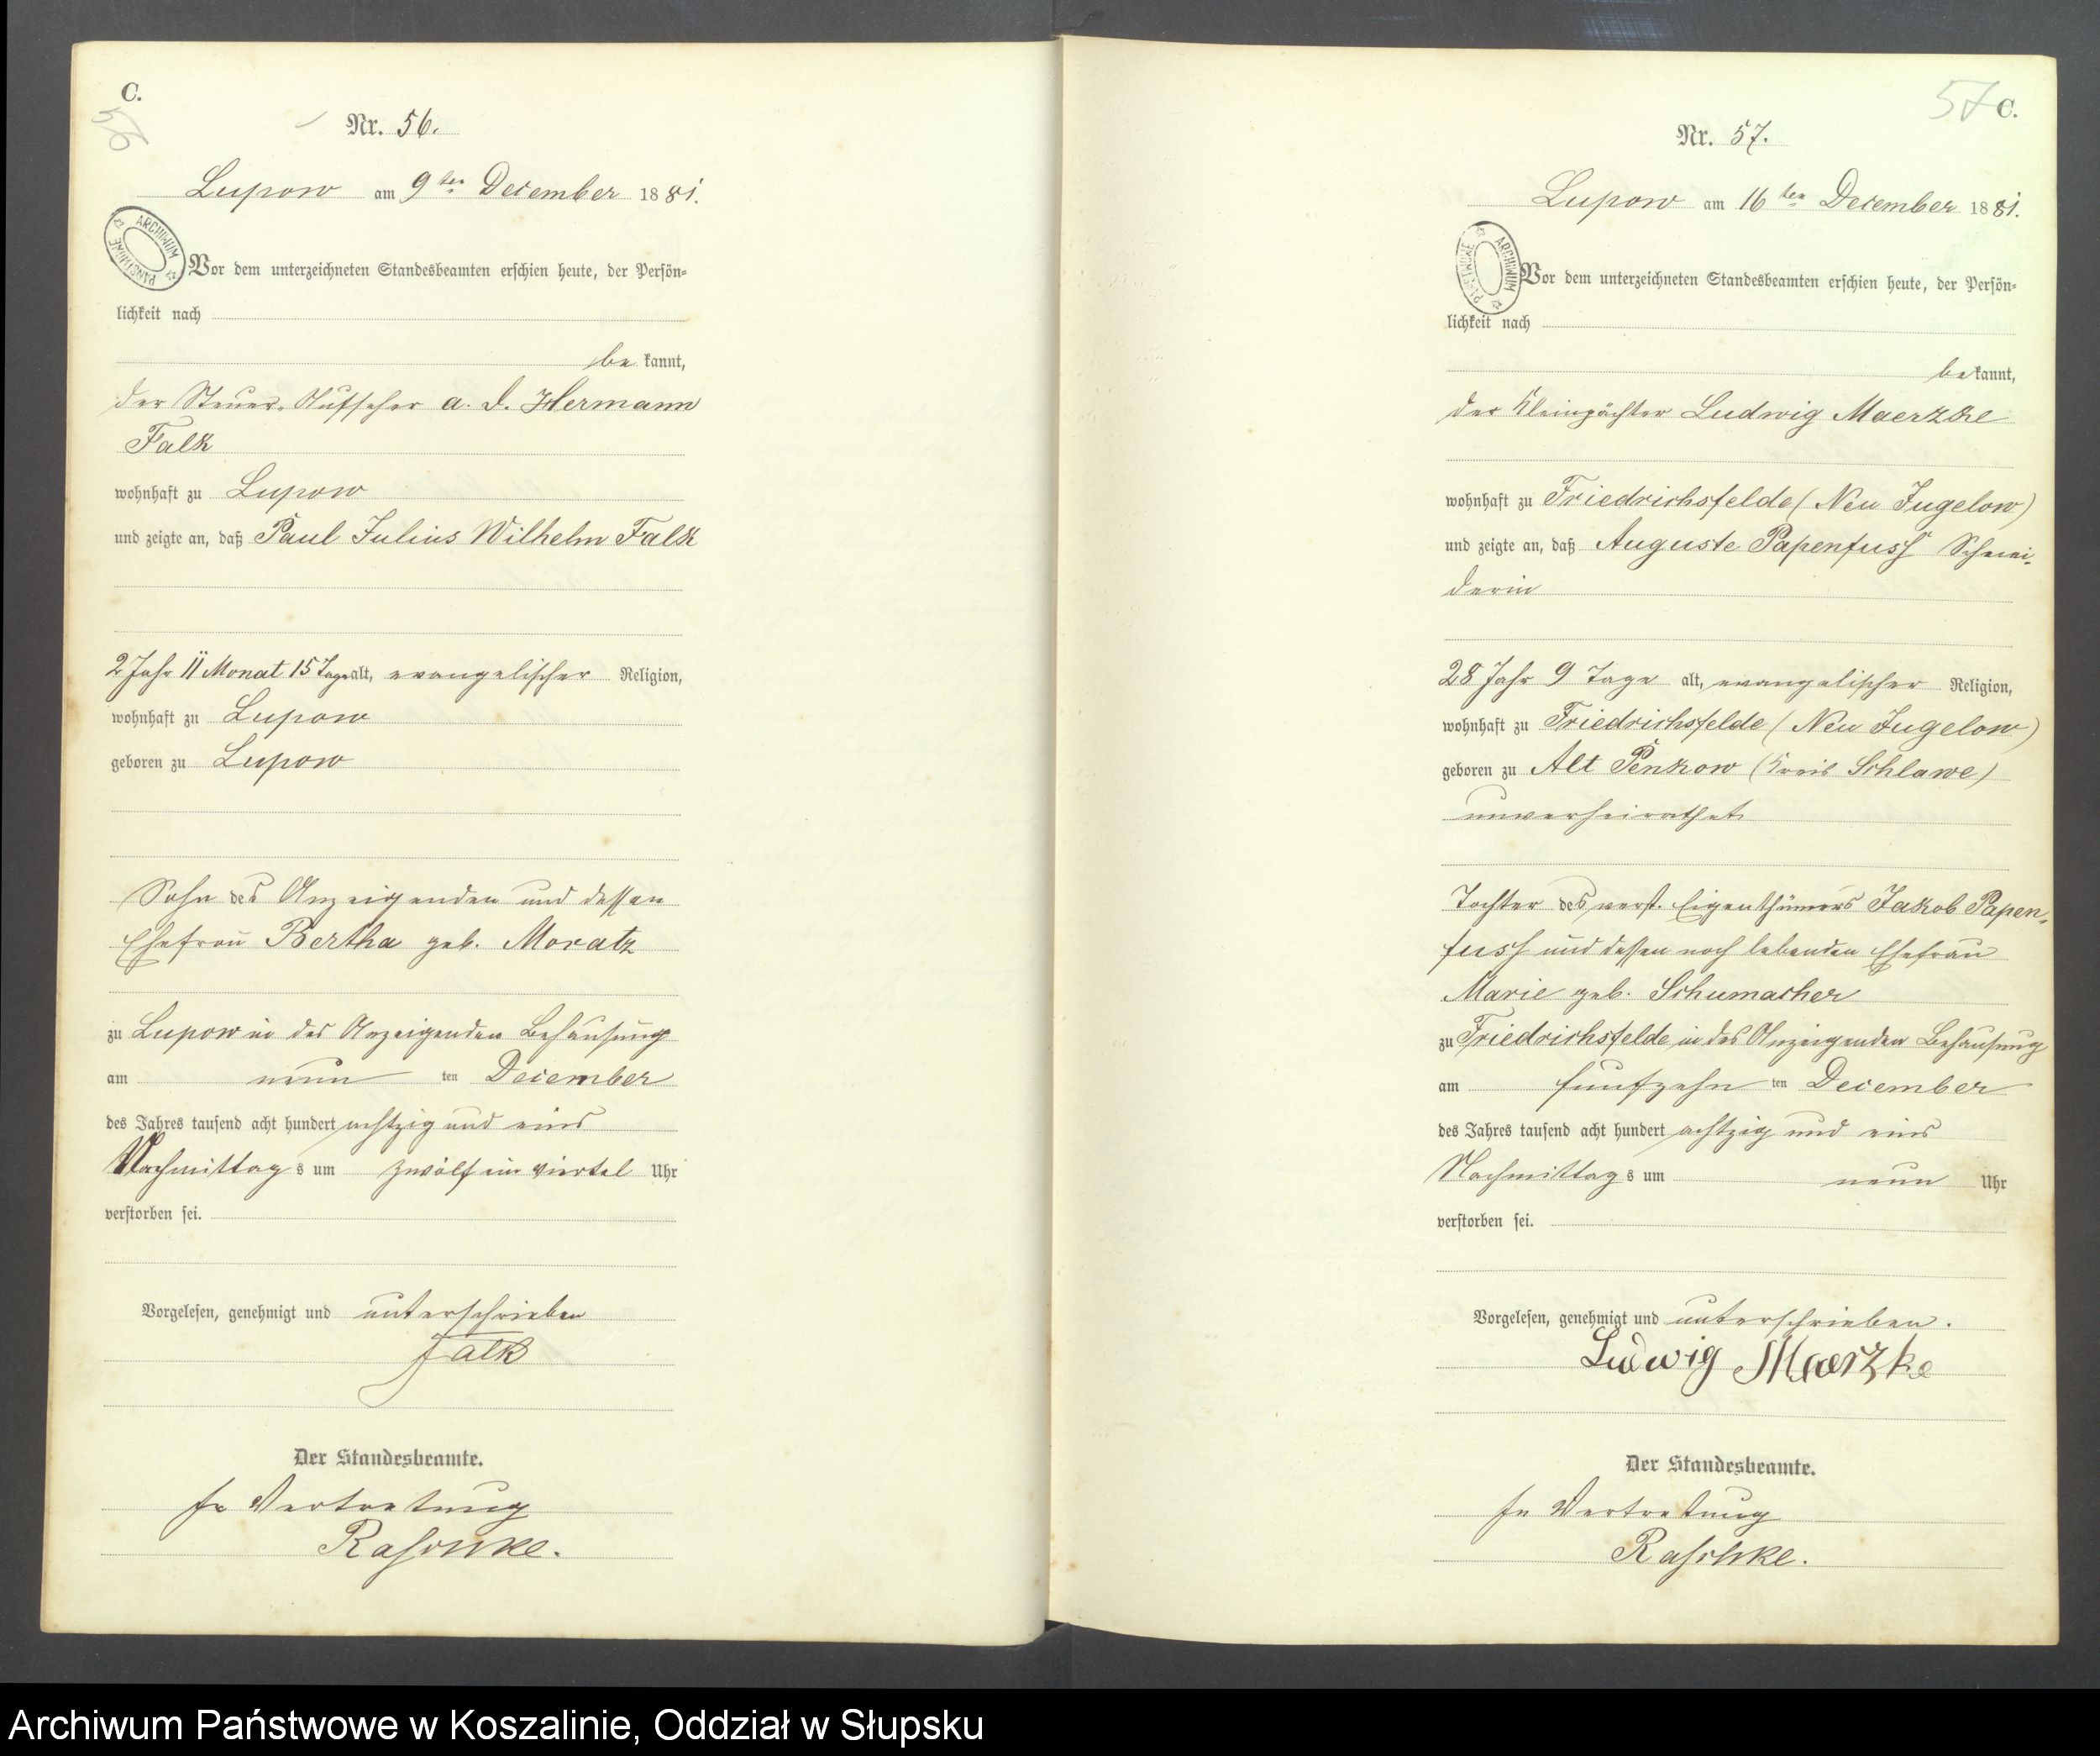 C.
56
Nr. 56.
Lupow am 9ten December 1881.
ARCHIWUM PAŃSTWOWE
Vor dem unterzeichneten Standesbeamten erschien heute, der Persön-
lichkeit nach
be kannt,
der Steuer-Aufseher a. D. Hermann
Falk
wohnhaft zu Lupow
und zeigte an, daß Paul Julius Wilhelm Falk
2 Jahr 11 Monat 15 Tage alt, evangelischer Religion,
wohnhaft zu Lupow
geboren zu Lupow
Sohn des Anzeigenden und dessen
Ehefrau Bertha geb. Moratz
zu Lupow in des Anzeigenden Behausung
am neun ten December
des Jahres tausend acht hundert achtzig und eins
Nachmittag s um zwölf ein viertel Uhr
verstorben sei.
Vorgelesen, genehmigt und unterschrieben
Falk
Der Standesbeamte.
In Vertretung
Raschke.
57 C.
Nr. 57.
Lupow am 16ten December 1881.
ARCHIWUM PAŃSTWOWE
Vor dem unterzeichneten Standesbeamten erschien heute, der Persön-
lichkeit nach
be kannt,
der Kleinpächter Ludwig Maerzke
wohnhaft zu Friedrichsfelde (Neu Jugelow)
und zeigte an, daß Auguste Papenfuss Schnei-
derin
28 Jahr 9 Tage alt, evangelischer Religion,
wohnhaft zu Friedrichsfelde (Neu Jugelow)
geboren zu Alt Penkow (Kreis Schlawe)
unverheirathet
Tochter des verst. Eigenthümers Jakob Papen-
fuss und dessen noch lebenden Ehefrau
Marie geb. Schumacher
zu Friedrichsfelde in des Anzeigenden Behausung
am fünfzehn ten December
des Jahres tausend acht hundert achtzig und eins
Nachmittag s um neun Uhr
verstorben sei.
Vorgelesen, genehmigt und unterschrieben.
Ludwig Maerzke
Der Standesbeamte.
In Vertretung
Raschke.
Archiwum Państwowe w Koszalinie, Oddział w Słupsku